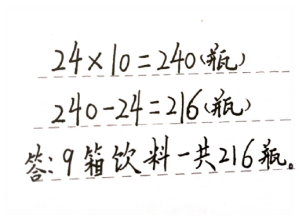 24×10=240(瓶)
240-24=216(瓶)
答:9箱饮料一共216瓶。